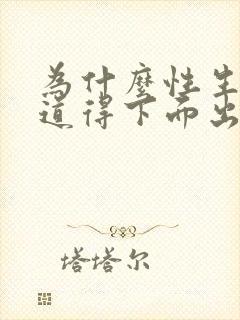 為什麼性生
道得下而出
塔塔尔